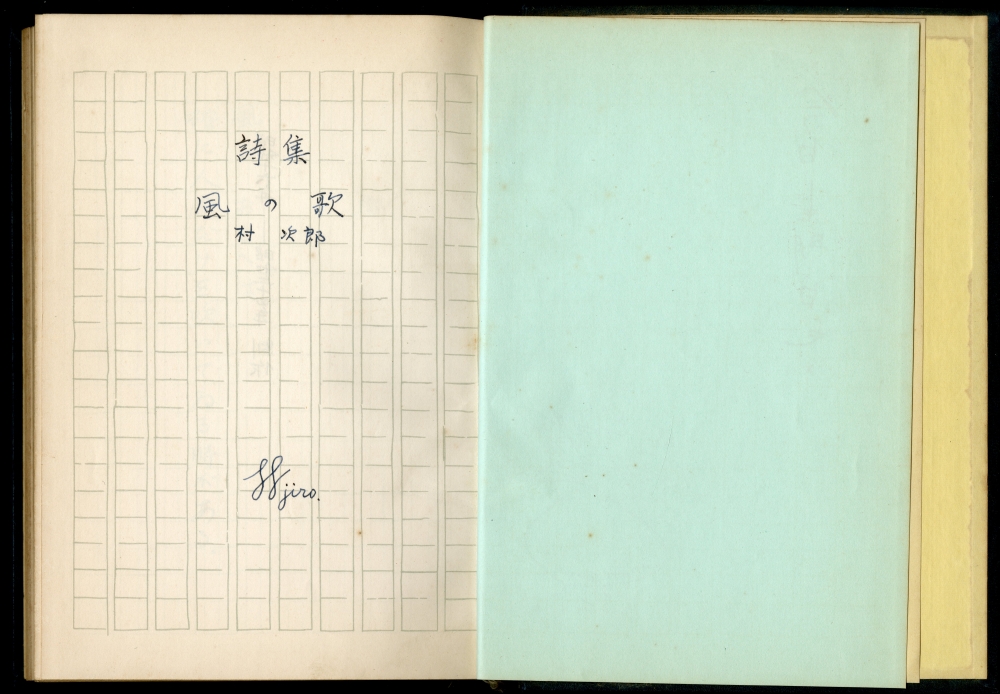 詩集
風の歌
村 次郎
jiro.